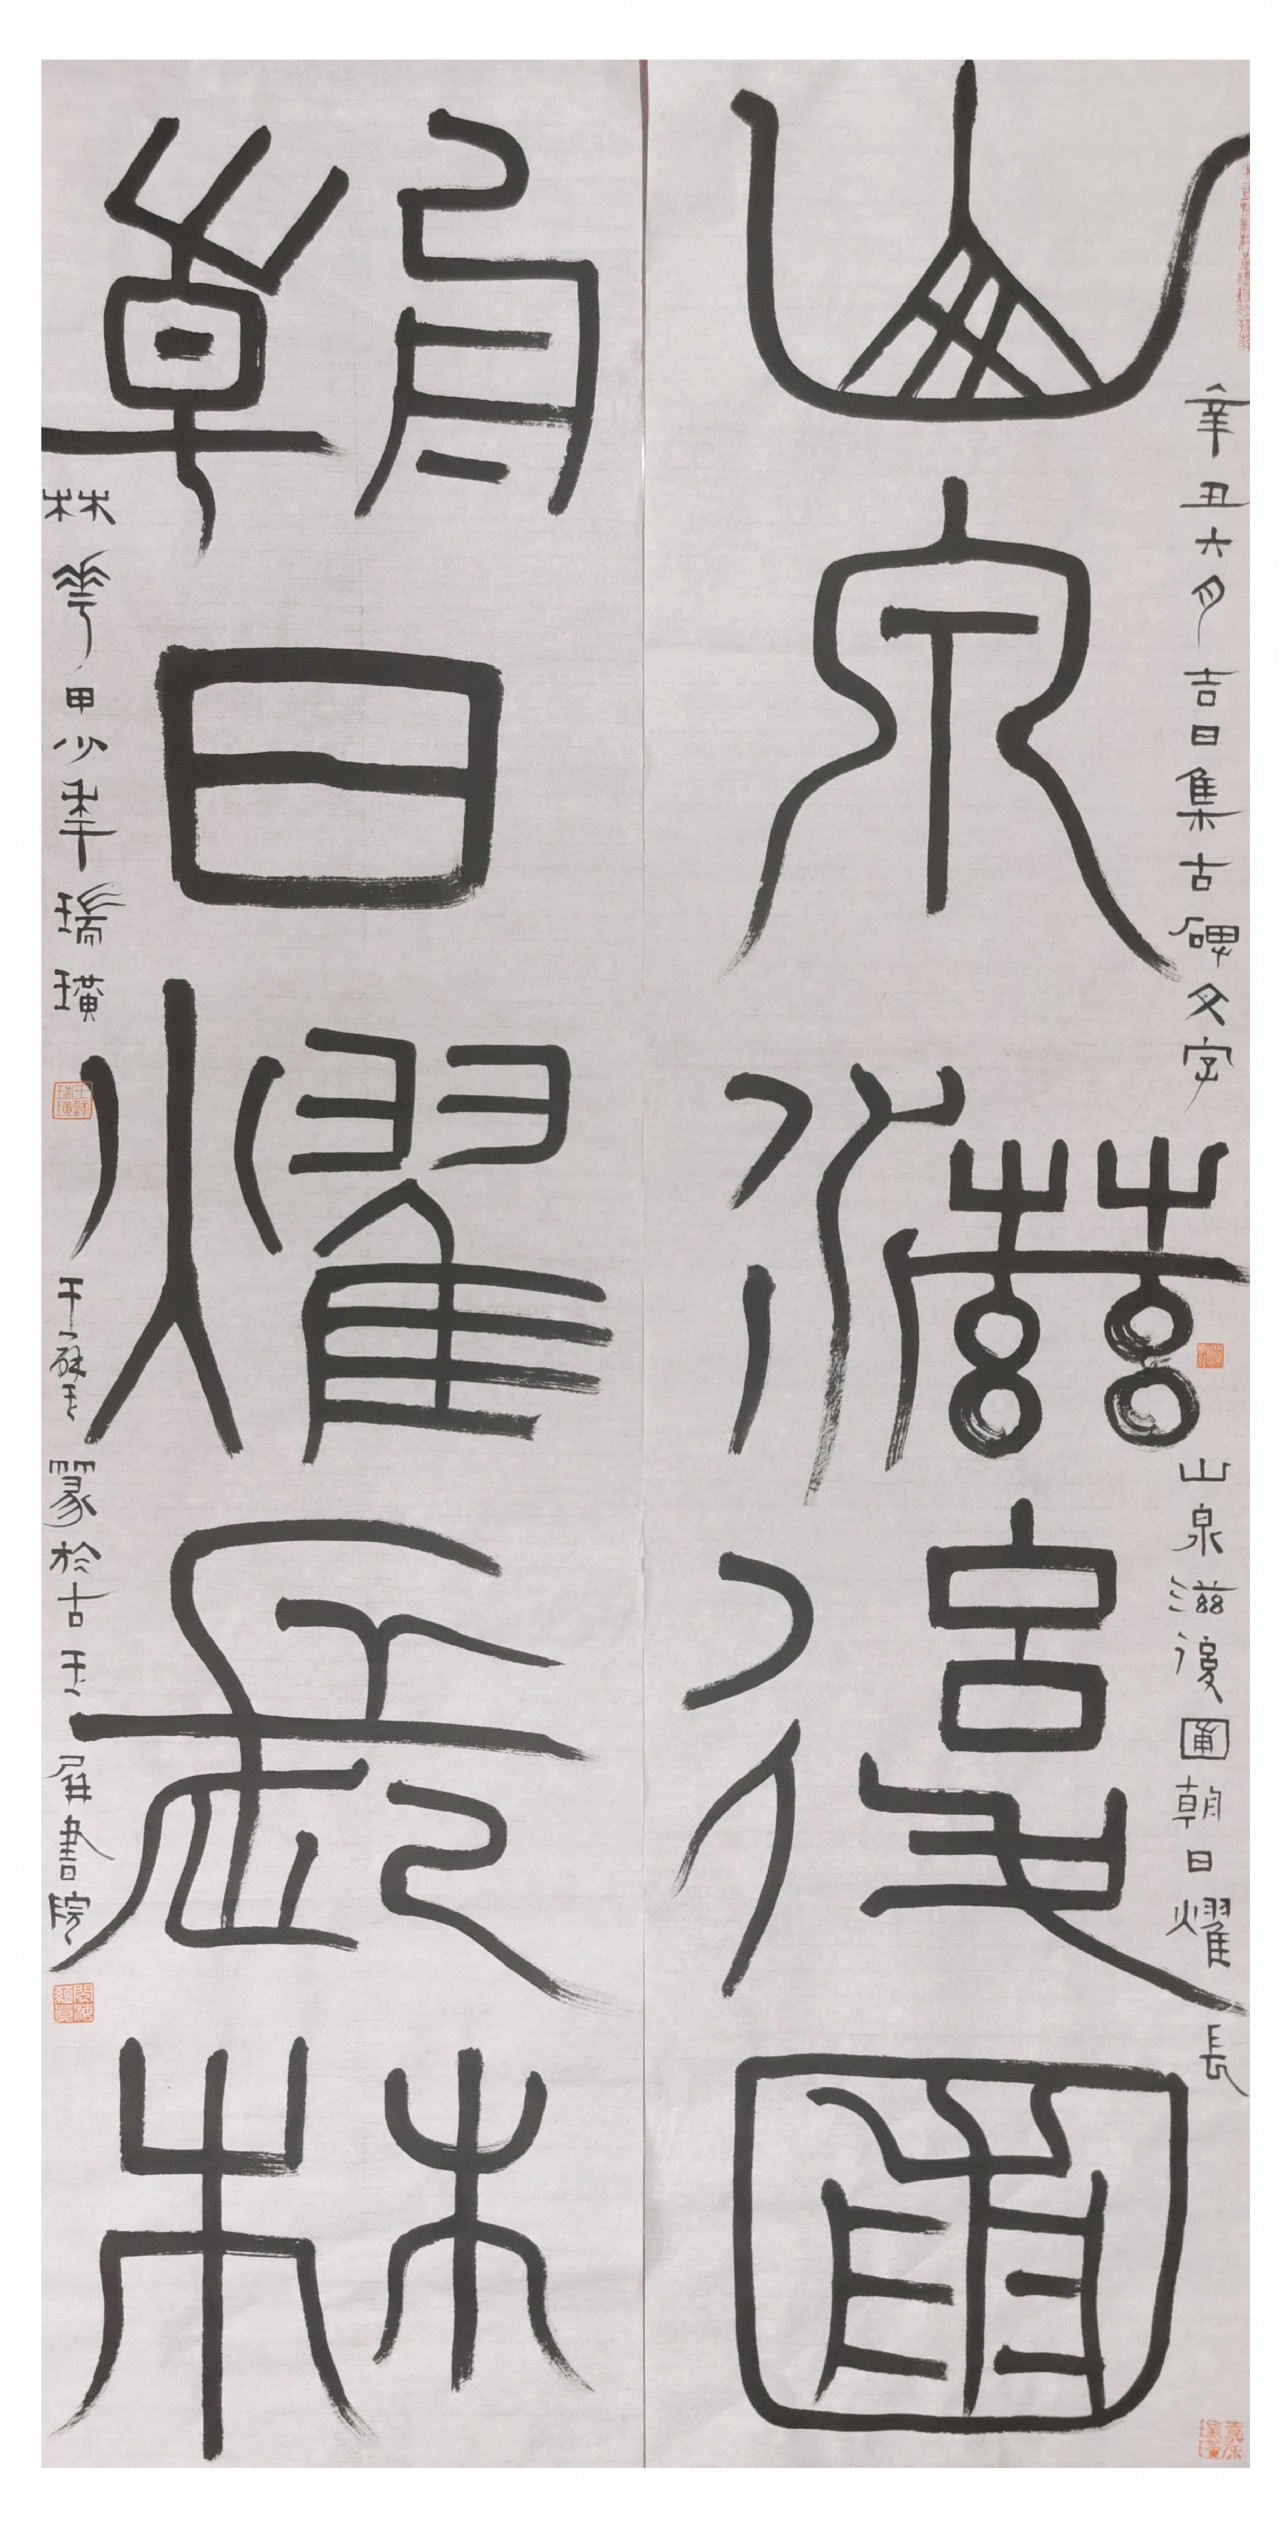 山泉滋復圃
朝日燿長林
辛丑六月吉日集古碑文字
山泉滋復圃朝日燿長
林華甲少年瑞璜
篆於古玉屏書院